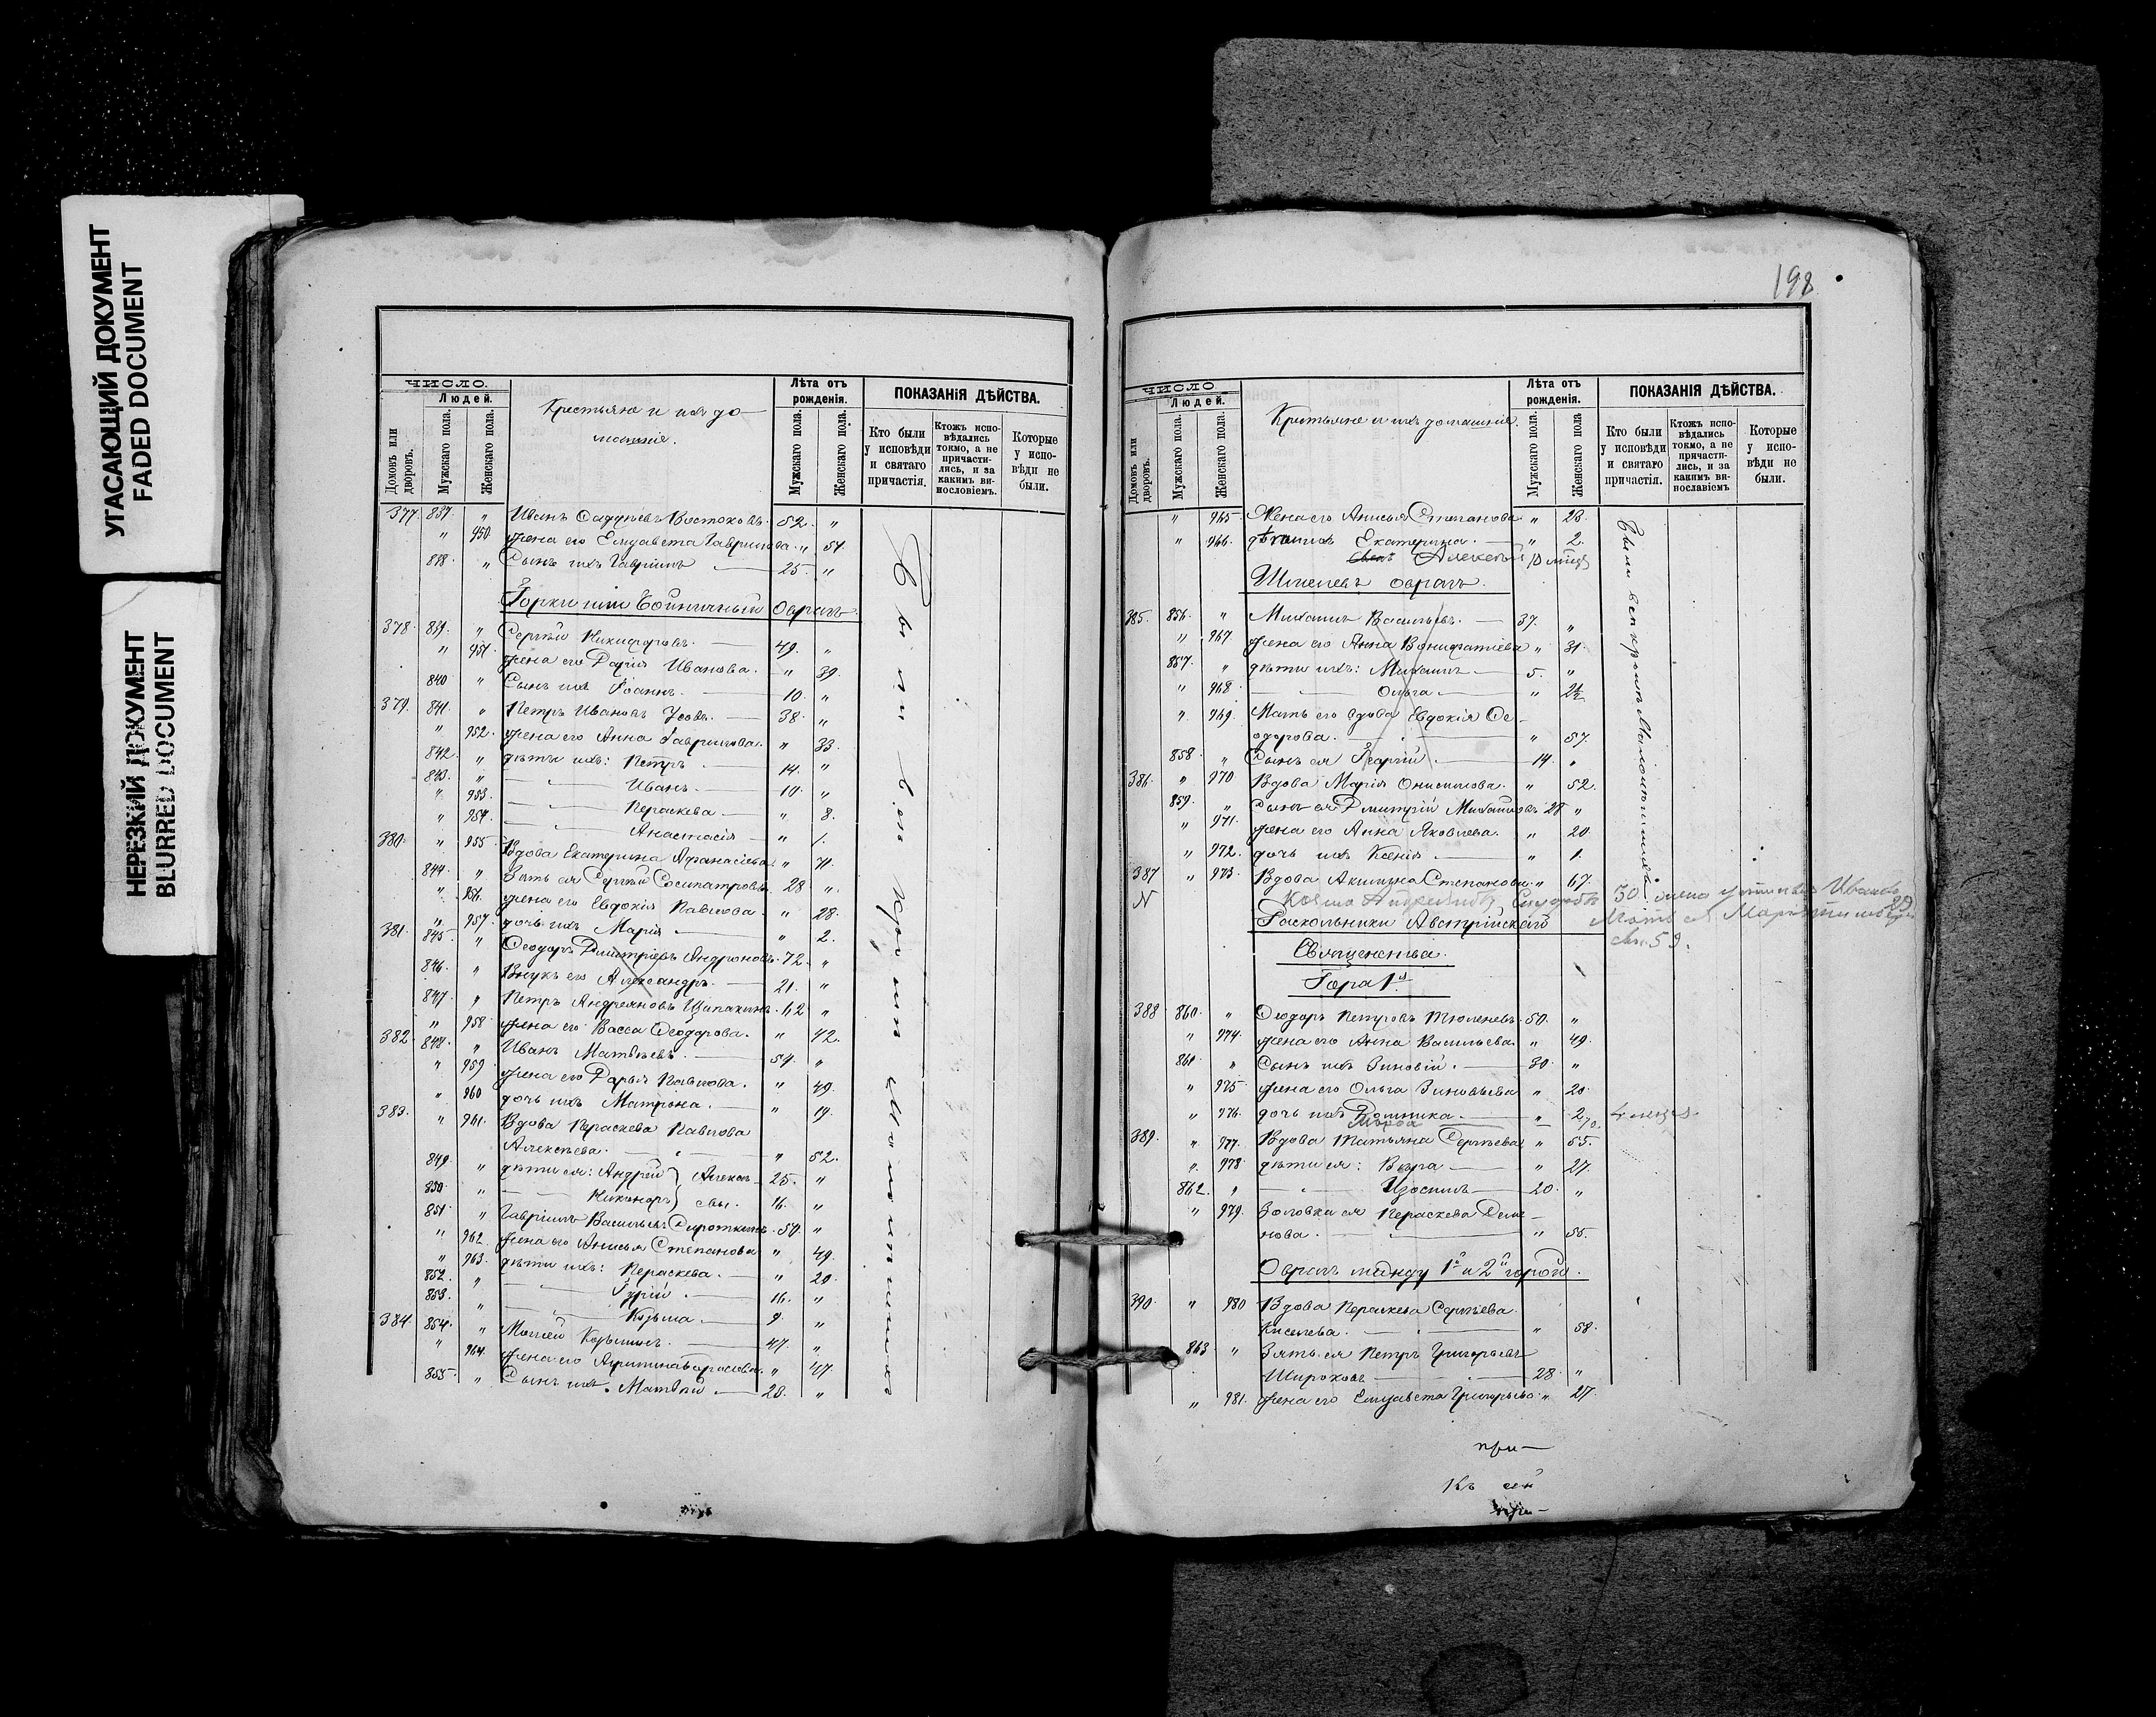 УГАСАЮЩИЙ ДОКУМЕНТ
FADED DOCUMENT
НЕРЕЗКИЙ ДОКУМЕНТ
BLURRED DOCUMENT
ЧИСЛО.
Людей.
Домовъ или дворовъ.
Мужскаго пола.
Женскаго пола.
Крестьяне и ихъ до-
машніе.
Лѣта отъ рожденія.
Мужскаго пола.
Женскаго пола.
ПОКАЗАНІЯ ДѢЙСТВА.
Кто были у исповѣди и святаго причастія.
Ктожъ исповѣдались токмо, а не причастились, и за какимъ винословіемъ.
Которые у исповѣди не были.
377. 837. " Иванъ Востоковъ. 52. "
" 950. жена его Елисавета Гаврилова. " 51.
838. " Сынъ ихъ Гавріилъ — 25. "
Горки или Оврагъ.
378. 839. " Сергѣй Никифоровъ. — 49. "
" 951. жена его Дарія Иванова. " 39.
840. " Сынъ ихъ Іоаннъ. — 10. "
379. 841. " Петръ Ивановъ Усовъ. — 38. "
" 952. жена его Анна Гаврилова. " 33.
842. " дѣти ихъ: Петръ — 14. "
843. " — Иванъ — 10. "
" 953. — Параскева — " 8.
" 954. — Анастасія — " 1.
380. " 955. Вдова Екатерина Афанасіева. " 71.
844. " Зять ея Сергѣй Сосипатровъ. 28 "
" 956. жена его Евдокія Павлова. " 28.
" 957. дочь ихъ Марія — " 2.
381. 845. " Ѳеодоръ Димитріевъ Андроновъ. 72. "
846. " Внукъ его Александръ. — 21. "
847. " Петръ Андреяновъ 62 "
" 958. жена его Васса Ѳеодорова. " 42.
382. 848. " Иванъ Матвѣевъ. — 54. "
" 959. жена его Дарья Павлова. " 49.
" 960. дочь ихъ Матрона. — " 19.
383. " 961. Вдова Параскева Павлова
Алексѣева. — " 52.
849. " дѣти ея: Андрей } Алексѣ- 25. "
850. " — Никаноръ } евы. 16. "
851. " Гавріилъ Васильевъ Сироткинъ. 50. "
" 962. жена его Анисья Степанова " 49.
" 963. дѣти ихъ: Параскева. — " 20.
852. " — Гурій — 16. "
853. " — Козьма — 9. "
384. 854. " Моисей Козьминъ. — 47. "
" 964. жена его Агрипина " 47.
855. " Сынъ ихъ Матвѣй — 20. "
198
ЧИСЛО
Людей.
Домовъ или дворовъ.
Мужскаго пола.
Женскаго пола.
Крестьяне и ихъ домашніе.
Лѣта отъ рожденія.
Мужскаго пола.
Женскаго пола.
ПОКАЗАНІЯ ДѢЙСТВА.
Кто были у исповѣди и святаго причастія.
Ктожъ исповѣдались токмо, а не причастились, и за какимъ винославіемъ
Которые у исповѣди не были.
" 965. Жена его Анисья Степанова " 23.
" 966. дѣти ихъ Екатерина — " 2.
Алексѣй 10 мцв
Шмелевъ оврагъ.
385. 856. " Михаилъ Васильевъ. — 37. "
" 967 жена его Анна Вонифатіева " 31.
857. " дѣти ихъ: Михаилъ — 5. "
" 968. — Ольга — " 2½
" 969. Мать его вдова Евдокія Ѳе-
одорова. — " 57.
858. " Сынъ ея Георгій — 14. "
386. " 970 Вдова Марія Онисимова. " 52.
859. " Сынъ ея Дмитрій Михайловъ 28 "
" 971. жена его Анна Яковлева. " 20.
" 972. дочь ихъ Ксенія — " 1.
387 " 973. Вдова Акилина Степанова " 67.
N Козма 30 жена Иванов 29
Раскольники Австрійскаго Мать
Священства. 59.
Гора 1я
388 860. " Ѳеодоръ Петровъ Тюленевъ. 50. "
" 974. жена его Анна Васильева. " 49.
861. " Сынъ ихъ Зиновій. — 30. "
" 975. жена его Ольга Зиновьева " 20.
" 976. дочь ихъ Домника. — " 2 4 месяц.
389. " 977. Вдова Татьяна Сергѣева " 55.
" 978. дѣти ея: Вѣра — " 27.
862. " — Изосимъ — 20. "
" 979. Золовка ея Параскева Семе-
нова. — " 55.
Оврагъ между 1й и 2й горой.
390. " 980 Вдова Параскева Сергѣева
Киселева. — " 58.
863 " Зять ея Петръ Григорьевъ
Широковъ — 28. "
" 981. жена его Елисавета Григорьева " 27.
при-
Къ сей